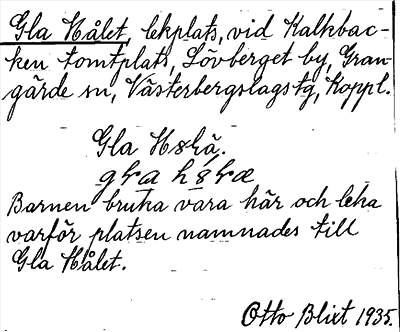 Gla Hålet, lekplats, vid Kalkbac-
ken tomtplats, Lövberget by, Gran-
gärde sn, Västerbergslags tg, Koppl.
Gla
Barnen bruka vara här och leka
varför platsen namnades till
Gla Hålet.
Otto Blixt 1935.